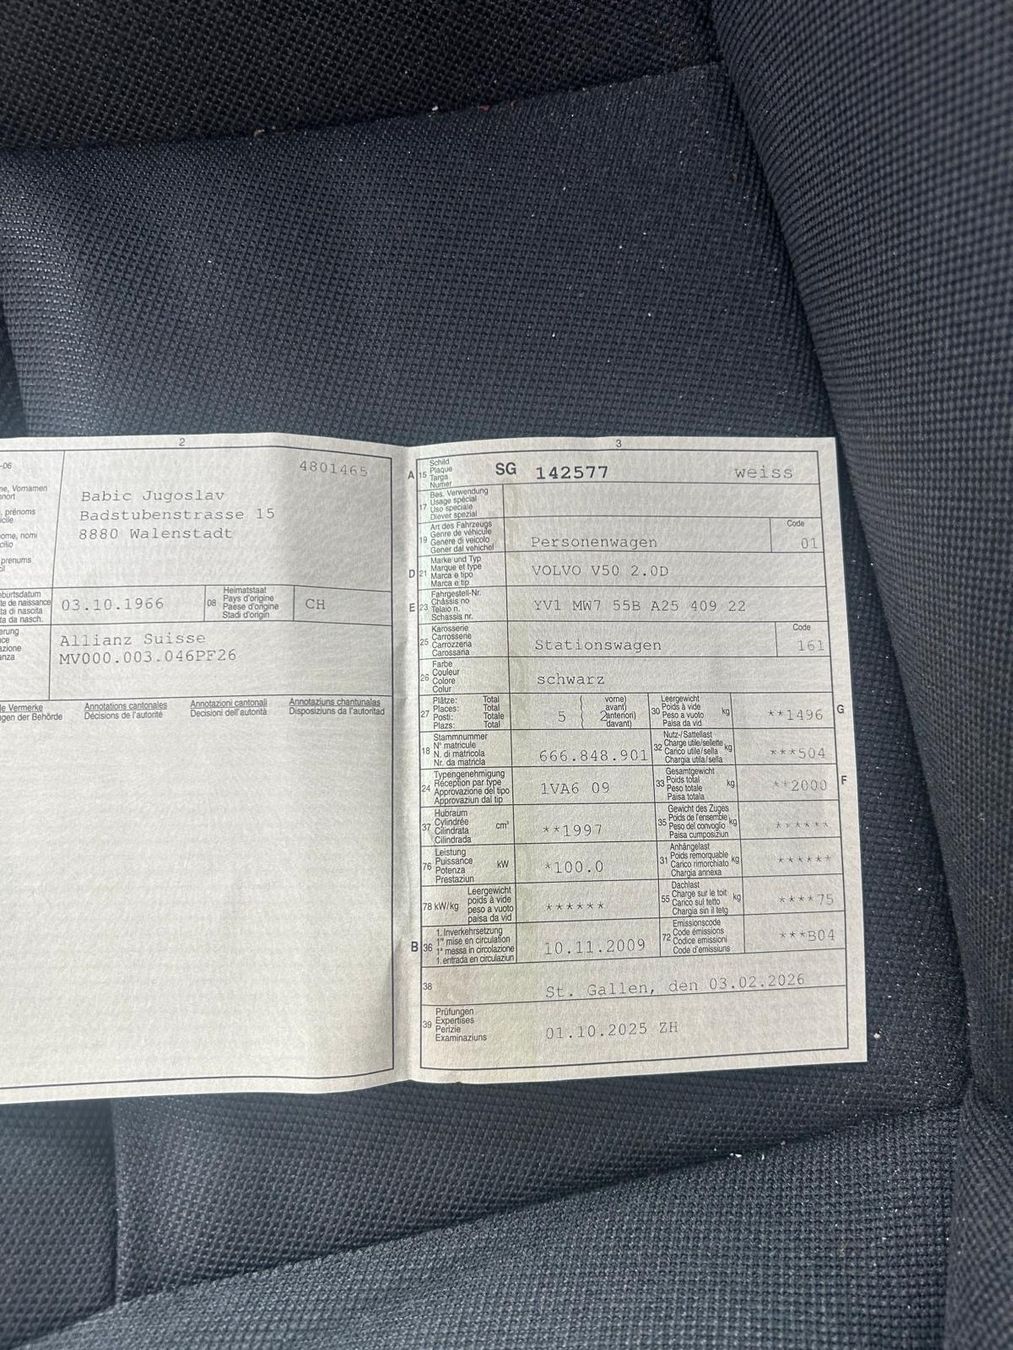 2
-06
4801465
e, Vornamen
nort
, prénoms
cile
ome, nomi
cilio
prenums
il
Babic Jugoslav
Badstubenstrasse 15
8880 Walenstadt
burtsdatum
te de naissance
ta di nascita
ta da nasch.
03.10.1966
08
Heimatstaat
Pays d'origine
Paese d'origine
Stadi d'origin
CH
erung
nce
azione
anza
Allianz Suisse
MV000.003.046PF26
le Vermerke
ngen der Behörde
Annotations cantonales
Décisions de l'autorité
Annotazioni cantonali
Decisioni dell'autorità
Annotaziuns chantunalas
Disposiziuns da l'autoritad
3
A 15
Schild
Plaque
Targa
Numer
SG 142577 weiss
17
Bes. Verwendung
Usage spécial
Uso speciale
Diever spezial
19
Art des Fahrzeugs
Genre de véhicule
Genere di veicolo
Gener dal vehichel
Personenwagen
Code
01
D 21
Marke und Typ
Marque et type
Marca e tipo
Marca e tip
VOLVO V50 2.0D
E 23
Fahrgestell-Nr.
Châssis no
Telaio n.
Schassis nr.
YV1 MW7 55B A25 409 22
25
Karosserie
Carrosserie
Carrozzeria
Carossaria
Stationswagen
Code
161
26
Farbe
Couleur
Colore
Colur
schwarz
27
Plätze: Total
Places: Total
Posti: Totale
Plazs: Total
5
( vorne)
avant)
2 anteriori)
davant)
30
Leergewicht
Poids à vide
Peso a vuoto
Paisa da vid
kg
**1496
G
18
Stammnummer
N° matricule
N. di matricola
Nr. da matricla
666.848.901
32
Nutz-/Sattellast
Charge utile/sellette
Carico utile/sella
Chargia utila/sella
kg
***504
24
Typengenehmigung
Réception par type
Approvazione del tipo
Approvaziun dal tip
1VA6 09
33
Gesamtgewicht
Poids total
Peso totale
Paisa totala
kg
**2000
F
37
Hubraum
Cylindrée
Cilindrata
Cilindrada
cm³
**1997
35
Gewicht des Zuges
Poids de l'ensemble
Peso del convoglio
Paisa cumposiziun
kg
******
76
Leistung
Puissance
Potenza
Prestaziun
kW
*100.0
31
Anhängelast
Poids remorquable
Carico rimorchiato
Chargia annexa
kg
******
78 kW/kg
Leergewicht
poids à vide
peso a vuoto
paisa da vid
******
55
Dachlast
Charge sur le toit
Carico sul tetto
Chargia sin il tetg
kg
****75
B 36
1. Inverkehrsetzung
1re mise en circulation
1a messa in circolazione
1. entrada en circulaziun
10.11.2009
72
Emissionscode
Code émissions
Codice emissioni
Code d'emissiuns
***B04
38
St. Gallen, den 03.02.2026
39
Prüfungen
Expertises
Perizie
Examinaziuns
01.10.2025 ZH